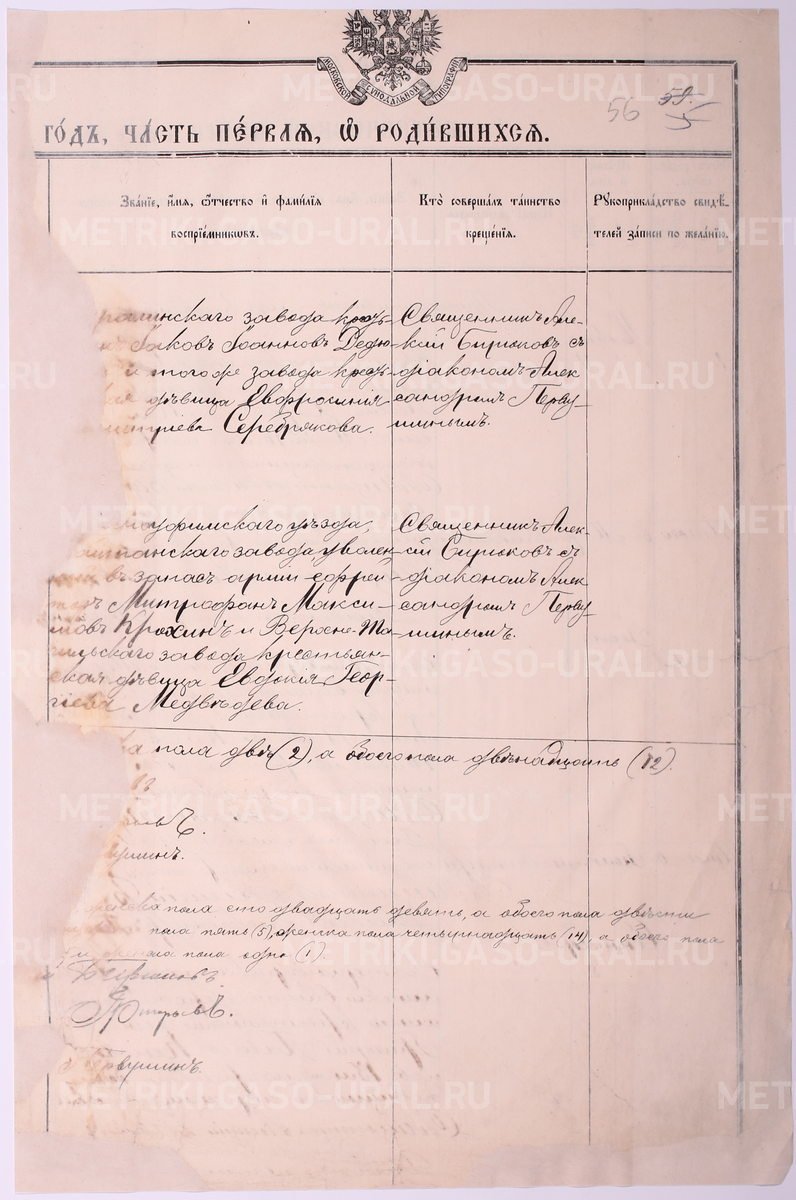 МОСКОВСКОЙ СѴНОДАЛЬНОЙ ТИПОГРАФІИ
56 59. 5
ГО́ДЪ, ЧА́СТЬ ПЕ́РВАЯ, Ѡ҆ РОДИ́ВШИХСЯ.
Зва́нїе, и҆́мя, ѻ҆́тчество и҆ фами́лїя
воспрїе́мниковъ.
Кто̀ соверша́лъ та́инство
креще́нїя.
Рꙋкоприкла́дство свидѣ́-
телей за́писи по жела́нїю.
линскаго завода кресть-
Іаковъ Іоанновъ Дедю-
того же завода кресть-
дѣвица Евфросинія
Серебрякова.
Священникъ Але-
ксій Бирюковъ съ
діакономъ Алек
сандромъ Перву
шинымъ.
уфимскаго уѣзда,
завода, уволен-
въ запасъ арміи ефрей-
Митрофанъ Макси-
мовъ Крохинъ и Верхне-Та-
гильскаго завода крестьян-
ская дѣвица Евдокія Геор-
гіева Медвѣдева.
Священникъ Алек-
сій Бирюковъ съ
діакономъ Алек
сандромъ Перву
шинымъ.
пола двѣ (2), а обоего пола двѣнадцать (12).
женска пола сто двадцать девять, а обоего пола двѣсти
пола пять (5), женска пола четырнадцать (14), а обоего пола
пола одно (1).
METRIKI.GASO-URAL.RU